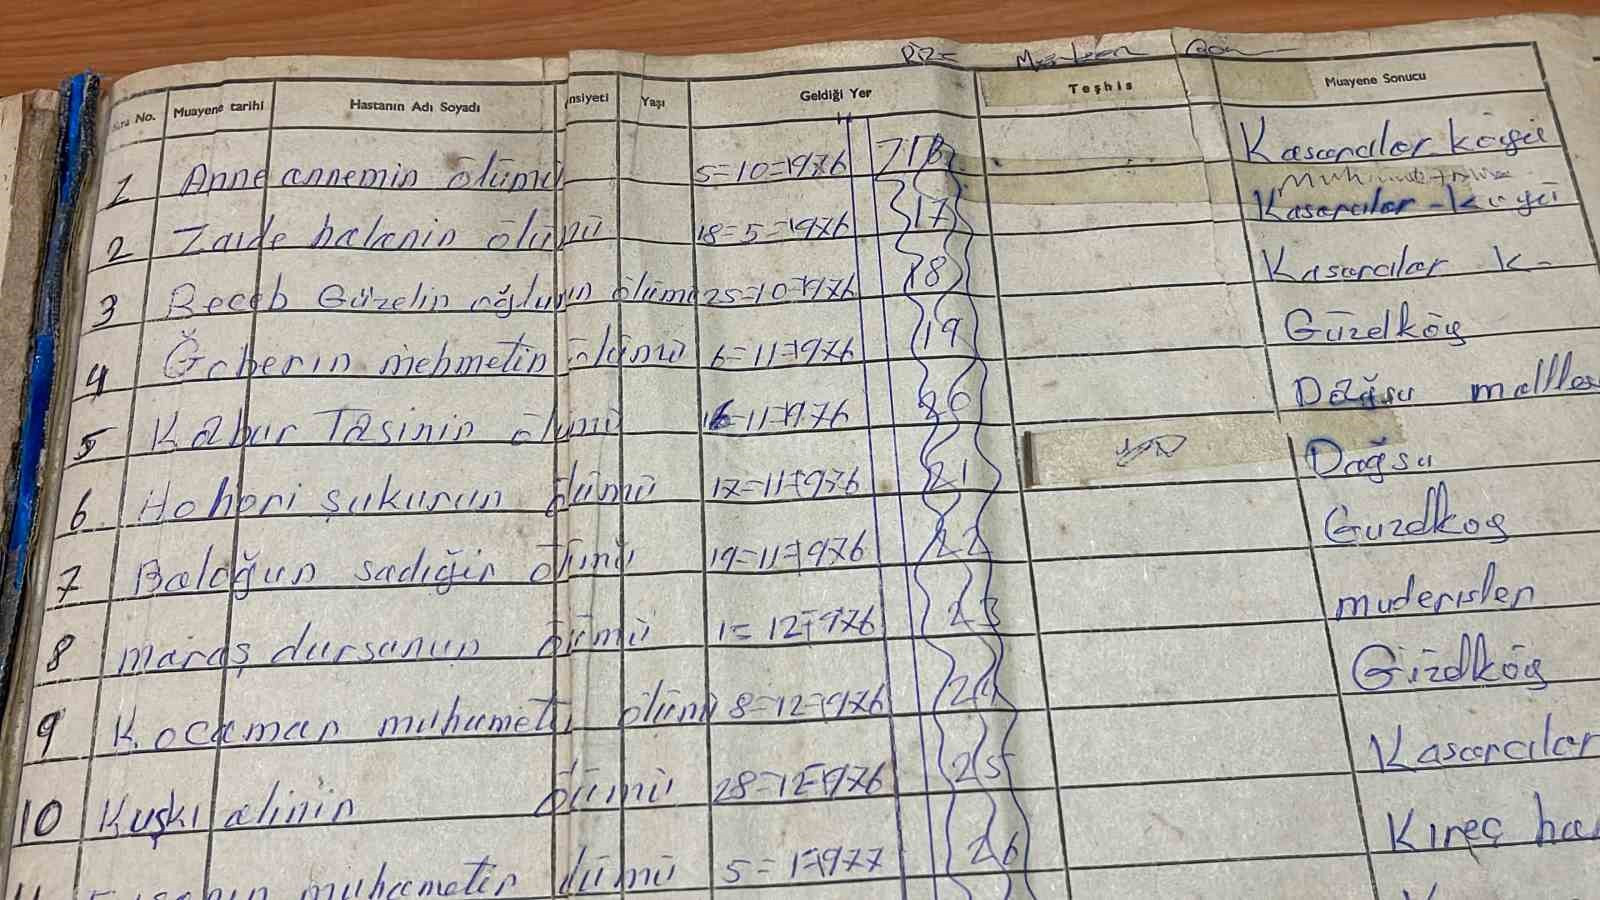 Sıra No. Muayene tarihi Hastanın Adı Soyadı nsiyeti Yaşı Geldiği Yer Teşhis Muayene Sonucu
1 Anne annemin ölümü 5=10=1976 Kasarcılar köyü
2 Zaide halanin ölümü 18=5=1976 17 Kasarcılar-Köyü
3 Receb Güzelin oğlunun ölümü 25=10=1976 18 Kasarcılar K-
4 mehmetin ölümü 6=11=1976 19 Güzelköy
5 Kabur Taşinin ölümü 16=11=1976 20 Dağsu
6 şukurun ölümü 17=11=1976 21 Dağsu
7 Baloğun sadığin ölümü 19=11=1976 22 Guzelkoy
8 maraş dursunun ölümü 1=12=1976 23 muderısler
9 Kocaman muhametin ölümü 8=12=1976 24 Güzelköy
10 Kuşkı alinin ölümü 28=12=1976 25 Kasarcılar
11 muhametin ölümü 5=1=1977 26 Kıreç ha